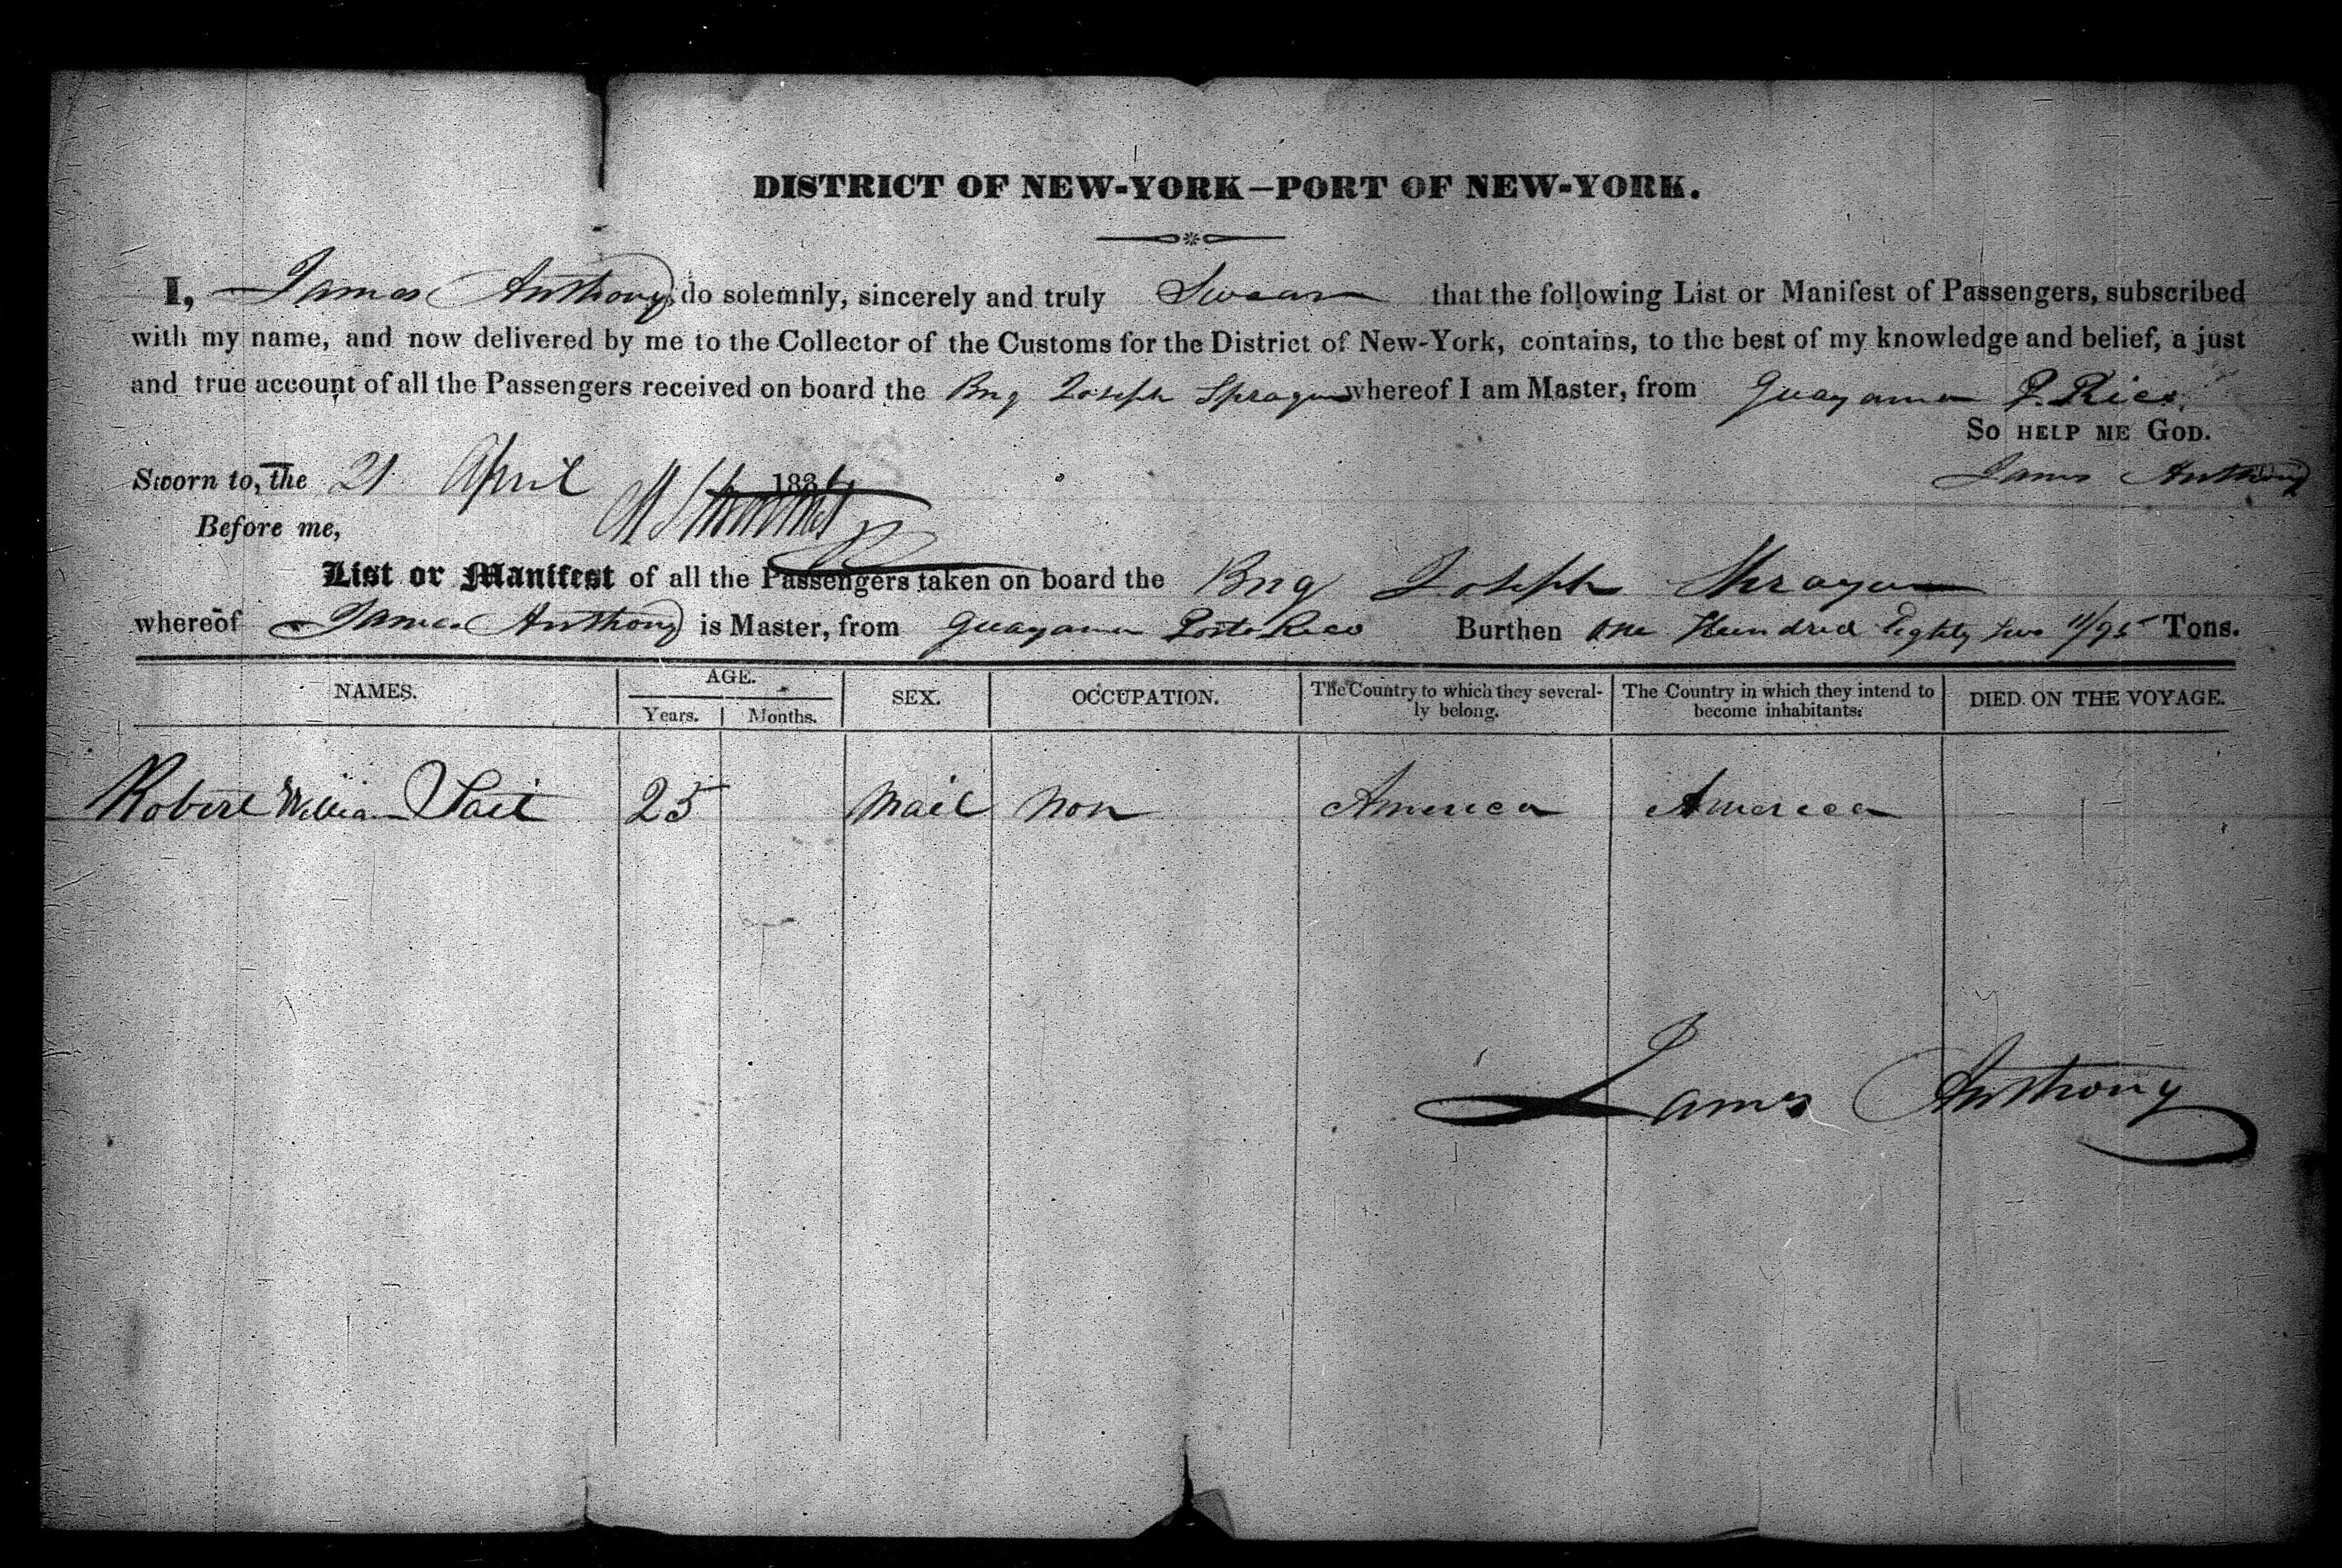 DISTRICT OF NEW-YORK—PORT OF NEW-YORK.
I, James Anthony do solemnly, sincerely and truly Swear that the following List or Manifest of Passengers, subscribed
with my name, and now delivered by me to the Collector of the Customs for the District of New-York, contains, to the best of my knowledge and belief, a just
and true account of all the Passengers received on board the Brig Joseph Sprague whereof I am Master, from Guayama P. Rico.
So HELP ME GOD.
Sworn to, the 21 April 183 James Anthony
Before me,
List or Manifest of all the Passengers taken on board the Brig Joseph Sprague
whereof James Anthony is Master, from Guayama Porto Rico Burthen One Hundred Eighty two 11/95 Tons.
NAMES. AGE. Years. Months. SEX. OCCUPATION. The Country to which they severally belong. The Country in which they intend to become inhabitants. DIED ON THE VOYAGE.
Robert William 25 Mail Non America America
James Anthony